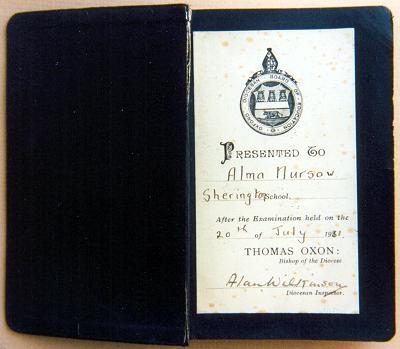 OXFORD DIOCESAN BOARD OF EDUCATION
PRESENTED TO
Alma Nursow
Sherington School,
After the Examination held on the
20th of July 1931.
THOMAS OXON:
Bishop of the Diocese
Alan Wilkinson
Diocesan Inspector.